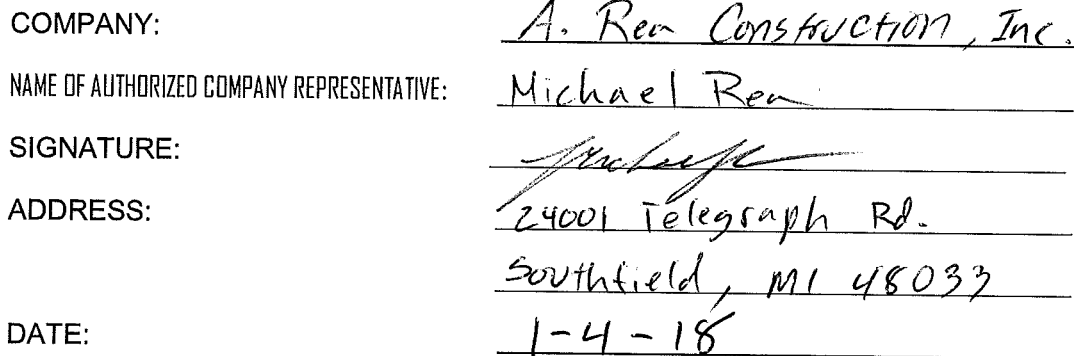 COMPANY: A. Rea Construction, Inc.
NAME OF AUTHORIZED COMPANY REPRESENTATIVE: Michael Rea
SIGNATURE:
ADDRESS: 24001 Telegraph Rd.
Southfield, MI 48033
DATE: 1-4-18